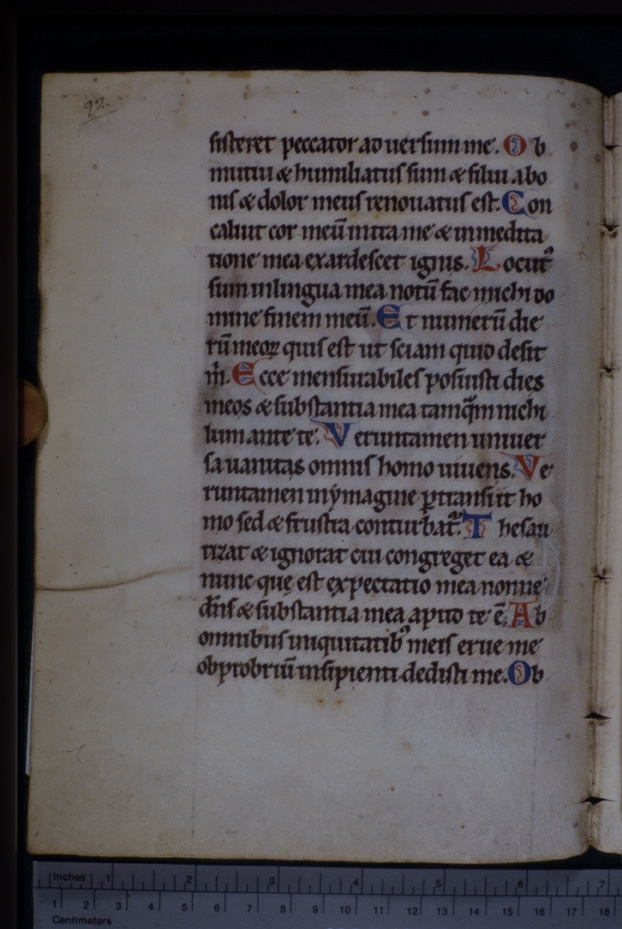 92.
sisteret peccator aduersum me. Ob
mutui & humiliatus sum & silui a bo
nis & dolor meus renouatus est. Con
caluit cor meū intra me & in medita
tione mea exardescet ignis. Locutꝰ
sum in lingua mea notū fac michi do
mine finem meū. Et numerū die
rū meoꝝ quis est ut sciam quid desit
m̄. Ecce mensurabiles posuisti dies
meos & substantia mea tamq̄m nichi
lum ante te. Veruntamen uniuer
sa uanitas omnis homo uiuens. Ve
runtamen in ymagine ꝑtransiit ho
mo sed & frustra conturbat᷑. Thesau
rizat & ignorat cui congreget ea &
nunc que est expectatio mea nonne
dn̄s & substantia mea apud te ē. Ab
omnibus iniquitatibꝰ meis erue me
obprobriū insipienti dedisti me. Ob
Inches 1 2 3 4 5 6 7
1 2 3 4 5 6 7 8 9 10 11 12 13 14 15 16 17 18
Centimeters